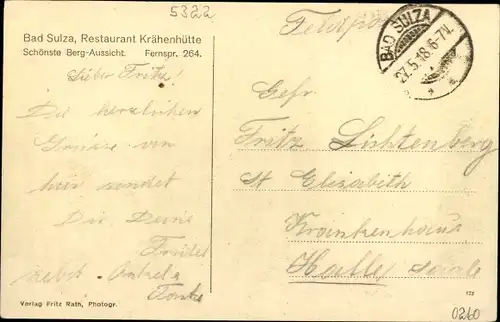 5322
Bad Sulza, Restaurant Krähenhütte
Schönste Berg-Aussicht. Fernspr. 264.
Feldpost
BAD SULZA
27.5.18.6-7V.
Lieber Fritz!
Die herzlichen
Grüsse von
hier sendet
Dir Deine
Friedel
nebst Onkel u
Tante
Gefr.
Fritz Lichtenberg
St Elisabeth
Krankenhaus
Halle Saale
Verlag Fritz Rath, Photogr.
0260